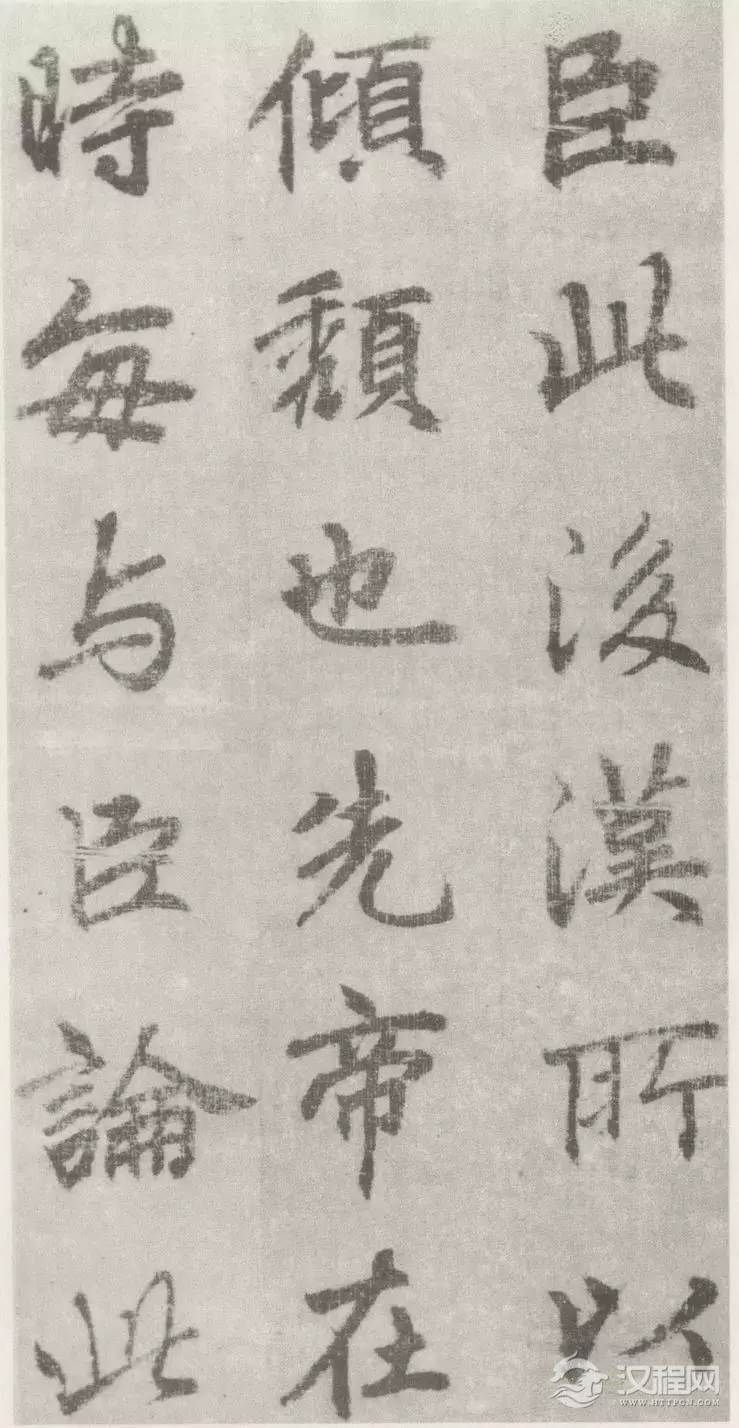 臣此後漢所以
傾頹也先帝在
時每与臣論此
汉程网
WWW.HTTPCN.COM